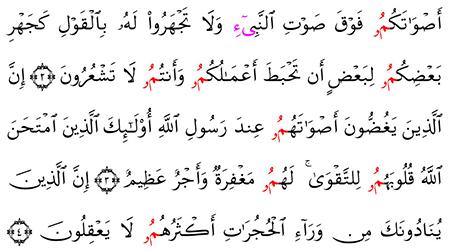 أَصْوَٰتَكُمُۥ فَوْقَ صَوْتِ النَّبِيٓءِ وَلَا تَجْهَرُواْ لَهُۥ بِالْقَوْلِ كَجَهْرِ
بَعْضِكُمُۥ لِبَعْضٍ أَن تَحْبَطَ أَعْمَٰلُكُمُۥ وَأَنتُمُۥ لَا تَشْعُرُونَ ﴿٢﴾ إِنَّ
الَّذِينَ يَغُضُّونَ أَصْوَٰتَهُمُۥ عِندَ رَسُولِ اللَّهِ أُوْلَٰٓئِكَ الَّذِينَ امْتَحَنَ
اللَّهُ قُلُوبَهُمُۥ لِلتَّقْوَىٰ ۚ لَهُمُۥ مَغْفِرَةٌ وَأَجْرٌ عَظِيمٌ ﴿٣﴾ إِنَّ الَّذِينَ
يُنَادُونَكَ مِن وَرَآءِ الْحُجُرَاتِ أَكْثَرُهُمُۥ لَا يَعْقِلُونَ ﴿٤﴾